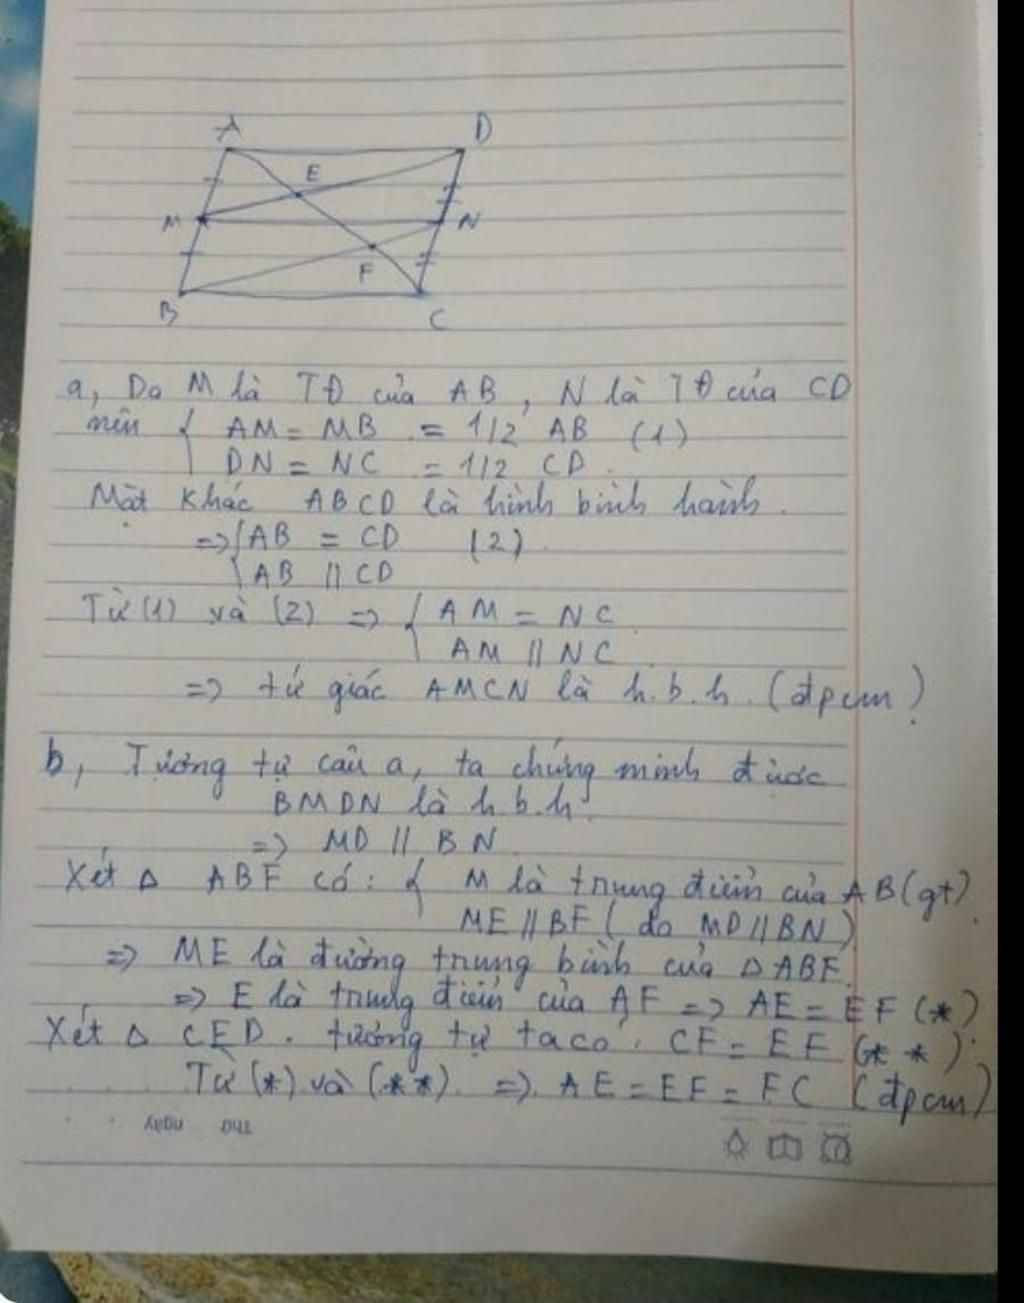 A
D
E
M
N
F
B
C
a, Do M là TĐ của AB, N là TĐ của CD
nên { AM = MB = 1/2 AB (1)
DN = NC = 1/2 CD.
Mặt khác ABCD là hình bình hành.
=> { AB = CD (2).
AB // CD
Từ (1) và (2) => { AM = NC.
AM // NC.
=> tứ giác AMCN là h.b.h. (đpcm)
b, Tương tự câu a, ta chứng minh được
BMDN là h.b.h.
=> MD // BN.
Xét Δ ABF có: { M là trung điểm của AB (gt).
ME // BF (do MD // BN)
=> ME là đường trung bình của Δ ABF.
=> E là trung điểm của AF => AE = EF (*)
Xét Δ CED. tương tự ta có: CF = EF (**).
Từ (*) và (**). =>. AE = EF = FC (đpcm)
Thứ ngày